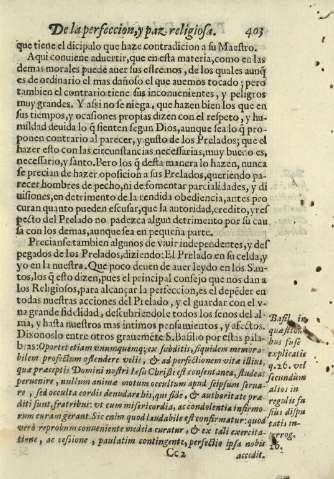 De la perfeccion, y paz religiosa. 403
que tiene el dicipulo que haze contradicion a su Maestro.
Aqui conuiene aduertir, que en esta materia, como en las
demas morales puede auer sus estremos, de los quales aunq̃
es de ordinario el mas dañoso el que auemos tocado; pero
tambien el contrario tiene sus inconuenientes, y peligros
muy grandes. Y assi no se niega, que hazen bien los que en
sus tiempos, y ocasiones propias dizen con el respeto, y hu-
mildad deuida lo q̃ sienten segun Dios, aunque sea lo q̃ pro-
ponen contrario al parecer, y gusto de los Prelados; que el
hazer esto con las circunstancias necessarias, muy bueno es,
necessario, y santo. Pero los q̃ desta manera lo hazen, nunca
se precian de hazer oposicion a sus Prelados, queriendo pa-
recer hombres de pecho, ni de fomentar parcialidades, y di
uisiones, en detrimento de la rendida obediencia, antes pro
curan quanto pueden escusar, que la autoridad, credito, y res
pecto del Prelado no padezca algun detrimento por su cau
sa con los demas, aunque sea en pequeña parte.
Precianse tambien algunos de viuir independentes, y des
pegados de los Prelados, diziendo: El Prelado en su celda, y
yo en la nuestra. Que poco deuen de auer leydo en los San-
tos, los q̃ esto dizen, pues el principal consejo que nos dan a
los Religiosos, para alcançar la perfeccion, es el depẽder en
todas nuestras acciones del Prelado, y el guardar con el v-
na grande fidelidad, descubriendole todos los senos del al-
ma, y hasta nuestros mas intimos pensamientos, y afectos.
Dixonoslo entre otros grauemẽte S. Basilio por estas pala-
bras: Oportet etiam vnumquemq; ex subditis, siquidem memora-
bilem profectum ostendere velit, & ad perfectionem vitæ illius,
quæ præceptis Domini nostri Iesu Christi est consentanea, studeat
peruenire, nullum animæ motum occultum apud seipsum serua-
re, sed occulta cordis denudare his, qui fide, & authoritate præ-
diti sunt, fratribus: vt cum misericordia, ac condolentia infirmo-
rum curam gerant. Sic enim quod laudabile est confirmatur: quod
verò reprobum conueniente medela curatur, & ex tali exercita-
tione, ac sessione, paulatim contingente, perfectio ipsa nobis
Cc 2 accedit.
Basil. in
quæstioni
bus fusè
explicatis
q. 26. vel
secundum
alios in
regulis fu
siùs dispu
tatis in-
terrog.
26.